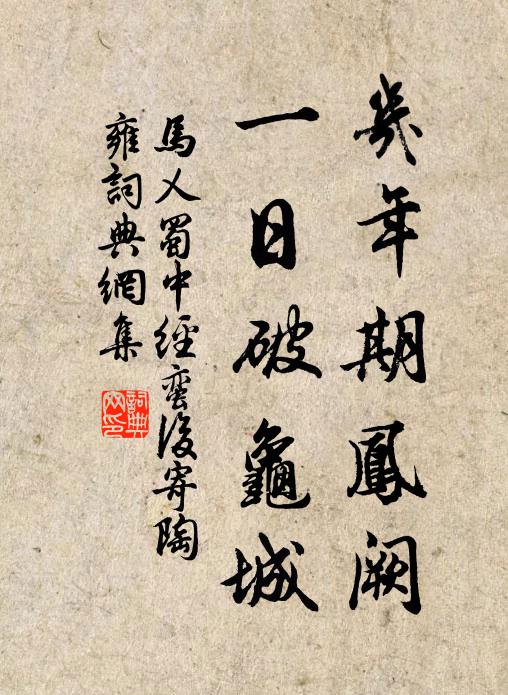 幾年期鳳闕
一日破龜城
馬乂蜀中經蠻後寄陶
雍詞典網集
詞典网印